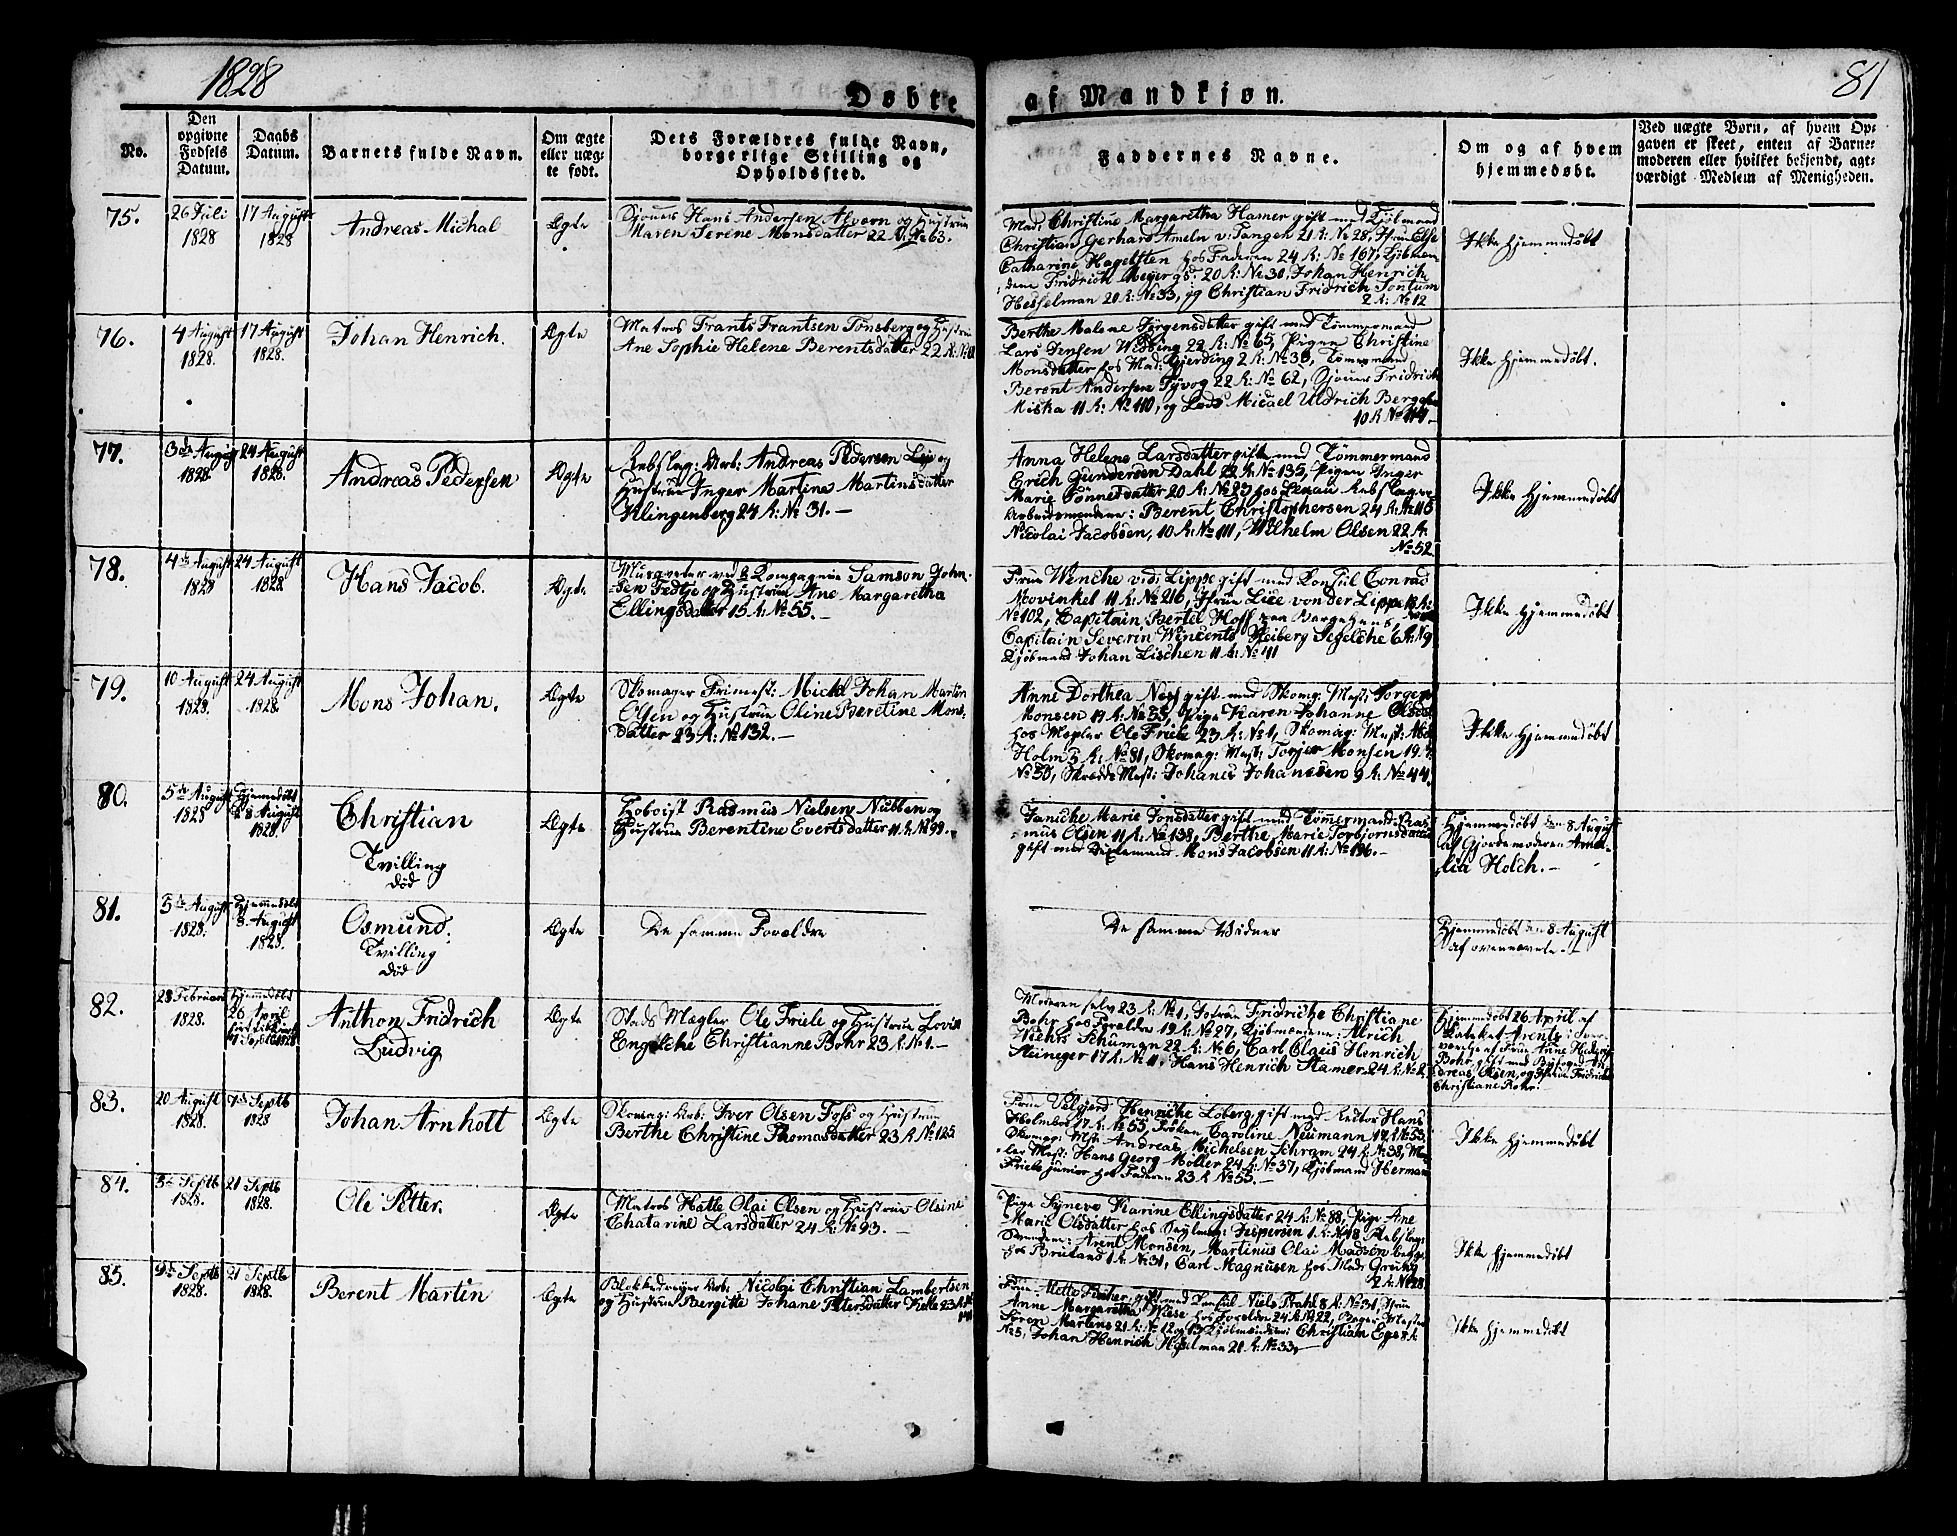 1828
Døbte af Mandkjøn.
81
No.
Den opgivne Fødsels Datum.
Daabs Datum.
Barnets fulde Navn.
Om ægte eller uægte født.
Dets Forældres fulde Navn, borgerlige Stilling og Opholdssted.
Faddernes Navne.
Om og af hvem hjemmedøbt.
Ved uægte Børn, af hvem Opgaven er skeet, enten af Barnemoderen eller hvilket bekjendt, agtværdigt Medlem af Menigheden.
75.
26 Juli 1828
17 August 1828
Andreas Michal
Ægte
Hans Andersen Alvern og Hustrue
Maren Serene Monsdatter 22 R: No 63.
Mad: Christine Margaretha Hamer gift med Kjøbmand
Christian Gerhard Ameln v: Tangen 21 R: No 28, Jfru Else
Catharine Hagelsten hos Faderen 24 R: No 167, Kjøbmen
dene Fridrich Meyer 20 R: No 30, Johan Henrich
Hesselman 20 R: No 33, og Christian Fridrich Sontum
2 R: No 12
Ikke hjemmedøbt
76.
4 August 1828.
17 August 1828.
Johan Henrich.
Ægte
Matros Frants Frantsen Tønsberg og Hustrue
Ane Sophie Helene Berentsdatter 22 R:
Berthe Malene Jørgensdatter gift med Tømmermand
Lars Jensen 22 R: No 65, Pigen Christine
Monsdatter hos Mad: Gjerding 2 R: No 38, Tømermand
Berent Andersen 22 R: No 62, Fridrich
Miska 11 R: No 110, og Micael Uldrich
10 R No 114.
Ikke hjemmedøbt.
77.
3de August 1828.
24 August 1828.
Andreas Pedersen
Ægte
Rebslag: Arb: Andreas Pedersen og
Hustrue Inger Martine Martinsdatter
Klingenberg 24 R: No 31.
Anna Helene Larsdatter gift med Tømmermand
Erich Gundersen Dahl 22 R: No 135, Pigen Inger
Marie Tønnesdatter 20 R: No 23 hos
Arbeidsmændene: Berent Christophersen 24 R: No 116
Nicolai Jacobsen, 10 R: No 111, Wilhelm Olsen 22 R:
No 52
Ikke hjemmedøbt
78.
4de August 1828
24 August 1828.
Hans Jacob.
Ægte
Musqveter ved Compagnie Samson John-
sen og Hustrue Ane Margaretha
Ellingsdatter 15 R: No 55.
Frue Wenche v: d: Lippe gift med Konsul Conrad
Movinkel 11 R: No 216, Jfrue Lice von der Lippe
No 102, Capitain Bertel Hoff
Capitain Severin Wincents Heiberg Segelche 6 R: No 9
Kjøbmand Johan Lischen 11 R: No 111
Ikke hjemmedøbt
79.
10 August 1828.
24 August 1828.
Mons Johan.
Ægte
Skomager Frimest: Michl Johan Martin
Olsen og Hustrue Oline Beretine Mons-
datter 23 R: No 132.
Anne Dorthea gift med Skomg: Mest: Torger
Monsen 19 R: No 55, Pige Karen Johanne
hos Megler Ole Friele 23 R: No 1, Skomag: Mest:
Holm 5 R: No 81, Skomag: Mest: Torjer Monsen 19 R:
No 50, Skrædde Mest: Johanes Johanesen 9 R: No 44.
Ikke hjemmedøbt
80.
5te August 1828
Hjemmedøbt 8 August 1828
Christian
Tvilling
død
Ægte
Hoboist Rasmus Nielsen Nubben og
Hustrue Berentine Evertsdatter 11 R. No 99.
Janiche Marie Jonsdatter gift med Tømermand Ras-
mus Olsen 11 R: No 138, Berthe Marie Torbjornsdatter
gift med Mons Jacobsen 11 R: No 136.
Hjemmedøbt den 8 August
af Gjordemoderen Ama-
lia Holch.
81.
5te August 1828.
Hjemmedøbt 8. August 1828.
Osmund.
Tvilling
død
Ægte
De samme Foreldre
De samme Vidner
Hjemmedøbt den 8 August
af ovennevnte.
82.
28 Februari 1828.
Hjemmedøbt 26 April
Anthon Fridrich
Ludvig
Ægte
Stads Mægler Ole Friele og Hustrue Lovise
Engelche Christianne Bohr 23 R: No 1.
Moderen selv 23 R: No 1, Jfrue Fridriche Christiane
Bohr hos Forelderne 19 R: No 27, Kjøbmændene: Alrich
Wichts Schuman 22 R: No 6, Carl Claus Henrich
Steineger 17 R: No 11, Hans Henrich Stamer 24 R: No 2.
Hjemmedøbt 26 April af
Kateket Arents i Over-
værelse af Frue Anne
Bohr gift med
Andreas Olsen, og Jfrue Fridriche
Christiane Bohr.
83.
20 August 1828.
7de Septb 1828
Johan Arnholt
Ægte
Skomag: Arb: Iver Olsen Foss og Hustrue
Berthe Christine Thomasdatter 23 R No 125
Frue Valgjerd Henriche Loberg gift med Lector Hans
Holmboe 17 R: No 55, Frøken Caroline Neumann 17 R: No 53.
Skomag: Mst: Andreas Michelsen Schram 24 R: No 38,
Mest: Hans Georg Møller 24 R: No 37, Kjøbmand Herman
Friele junior hos Faderen 23 R No 55.
Ikke hjemmedøbt
84.
3de Septb 1828.
21 Septb 1828.
Ole Petter.
Ægte
Matros Hatle Olai Olsen og Hustrue Olsine
Chatarine Larsdatter 24 R: No 93.
Pige Syneve Karine Ellingsdatter 24 R: No 88, Pige Ane
Marie Olsdatter hos Jespersen 1. R: No 18 Rebslag:
Svendene: Arent Monsen, Martinus Olai Madsen begge
hos 1 R: No 31, Carl Magnusen hos Mad: Greuhg
2 R: No 28
Ikke hjemmedøbt
85.
9de Septb 1828.
21 Septb 1828.
Berent Martin
Ægte
Arb: Nicolai Christian Lambertsen
og Hustrue Bergitte Johane Petersdatter 23 R:
Frue Mette Fischer gift med Konsul Niels Prahl 8 R: No 31, Jfrue
Anne Margaretha Wiese hos Forældr 24 R No 22, Bager Mester
Søren Martens 21 R: No 12 og 13 Kjøbmændene Christian Ege 8 R
No 5, Johan Henrich Heselman 20 R: No 33.
Ikke hjemmedøbt